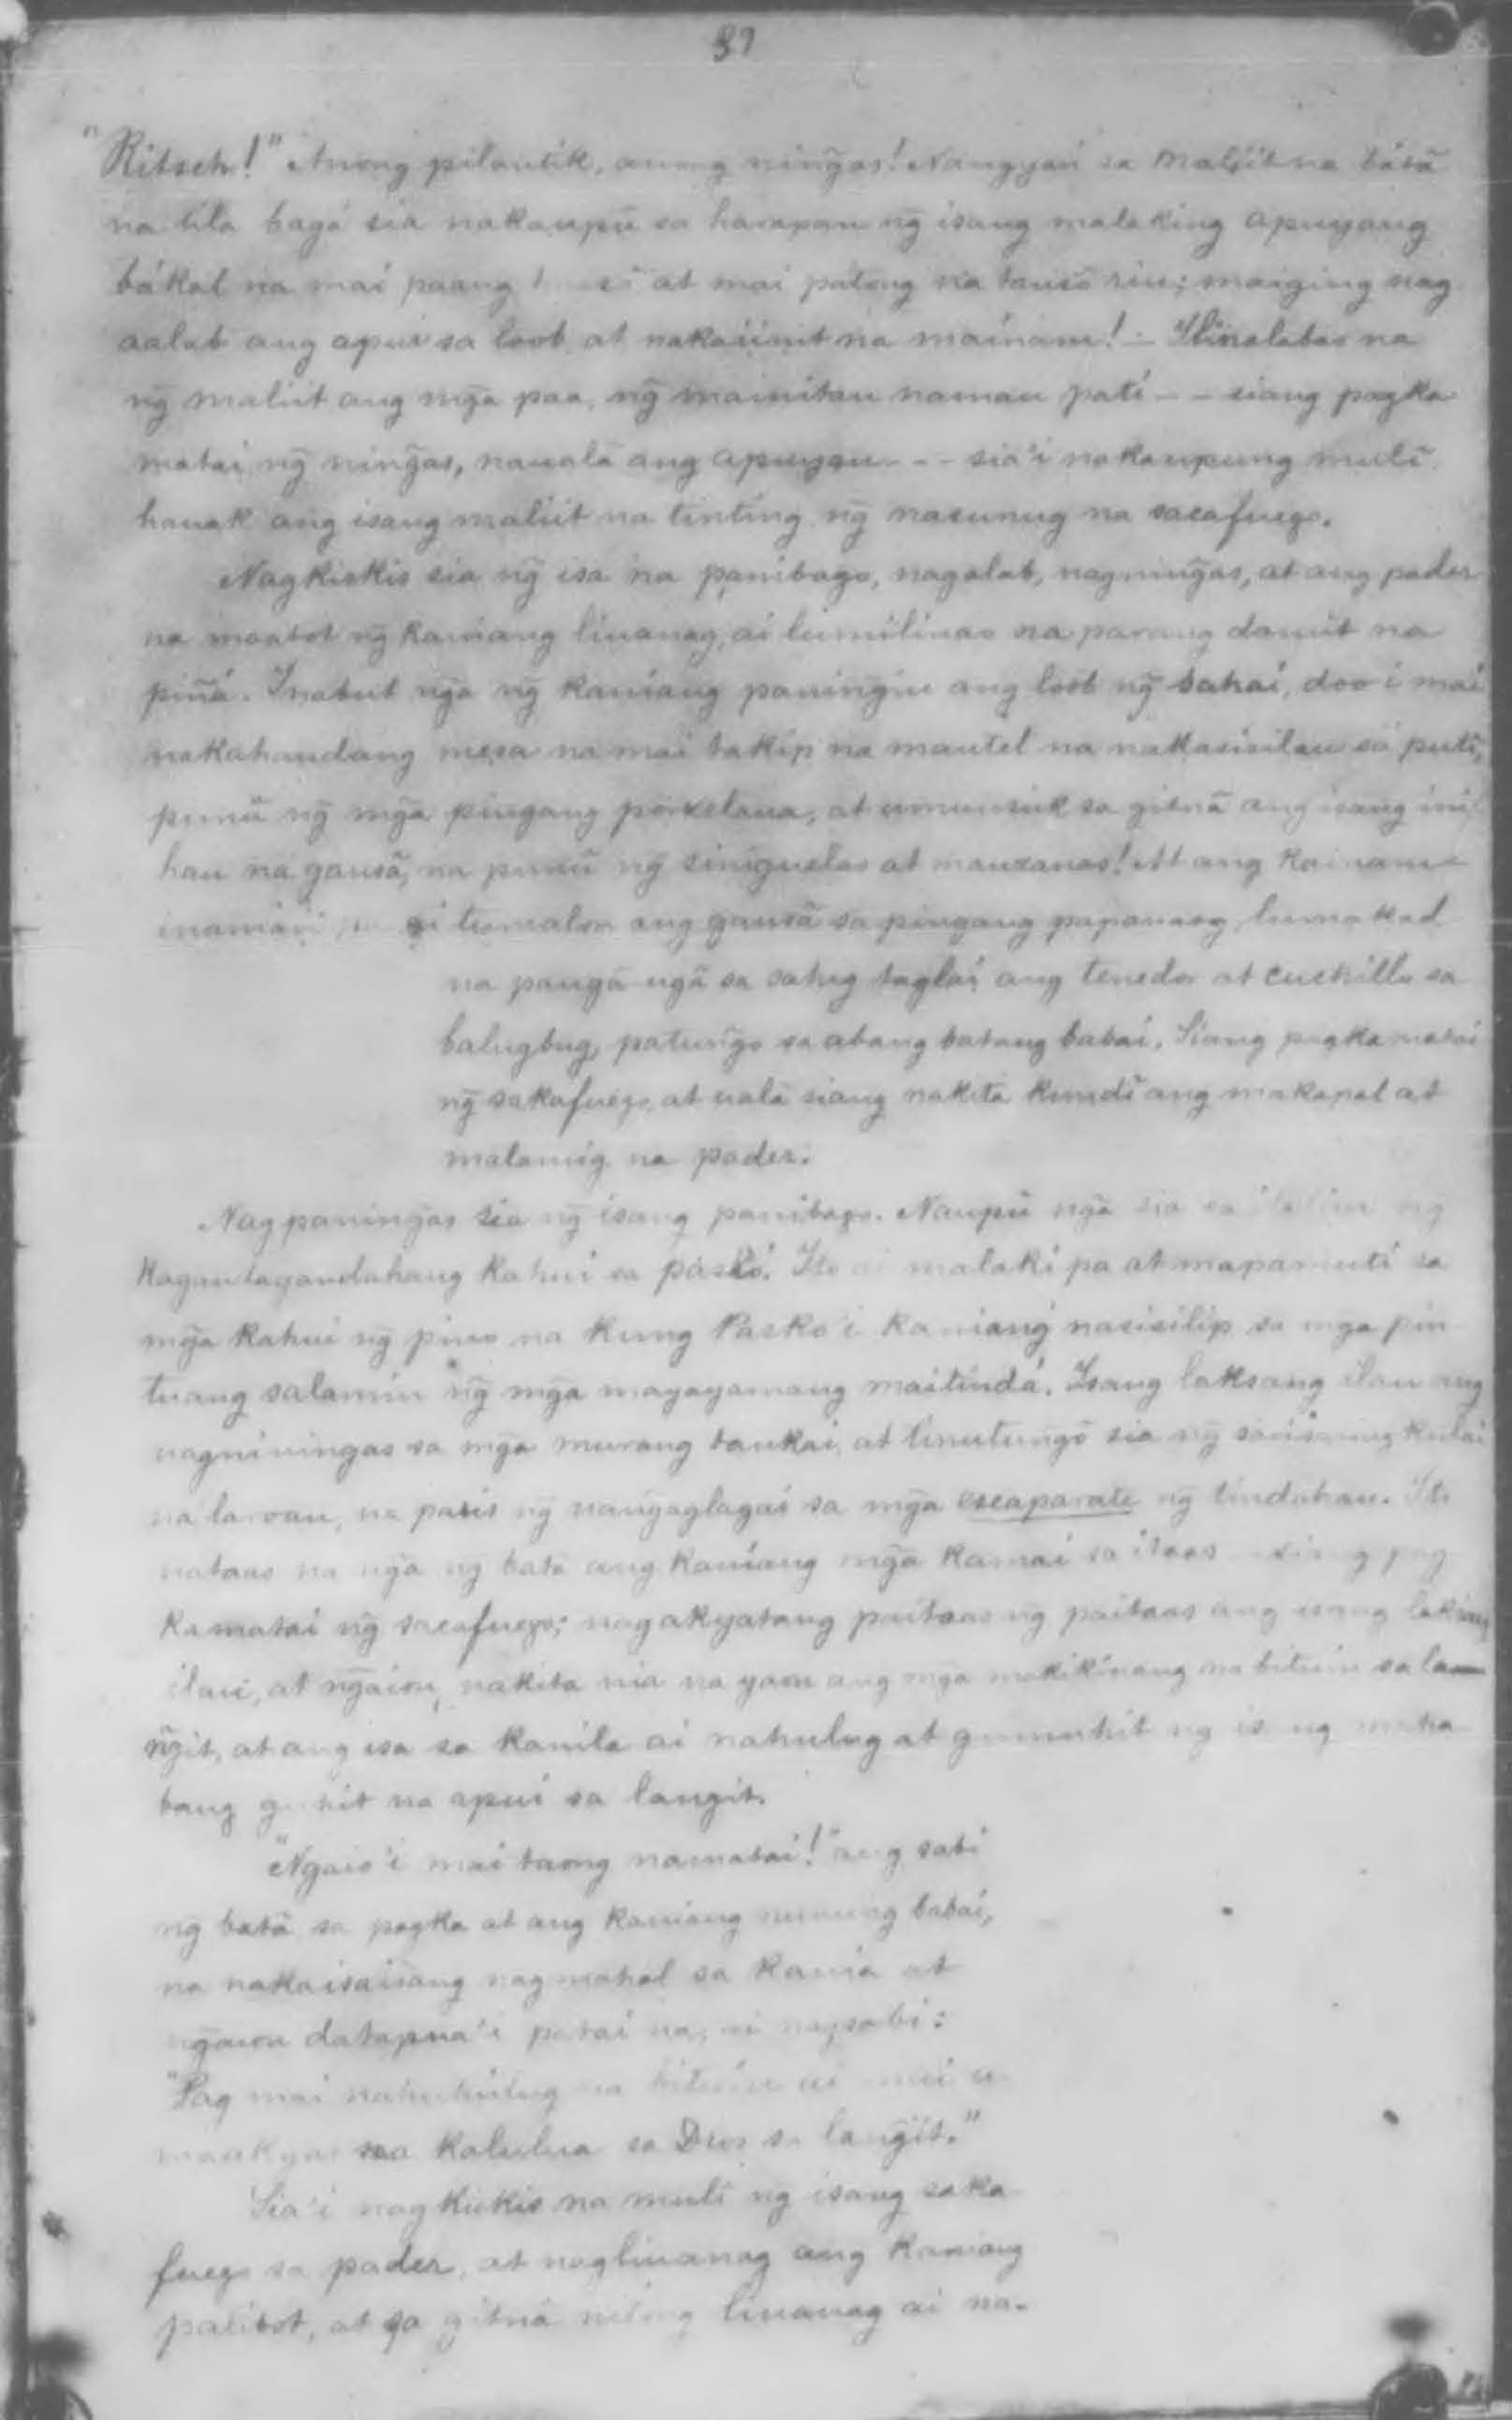 37
"Ritsch!" Anong pilantik, anong ninḡas! Nangyari sa maliit na bátā
na tila bagá sia nakaupū sa harapan nḡ isang malaking apuyang
bákal na mai paang at mai patong na tansō rin; maiging nag
aalab ang apui sa loob at nakaiinit na máinam! — Ilinalabas na
nḡ maliit ang mḡa paa, nḡ mainitan naman pati — — siang pagka
matai nḡ ninḡas, naualā ang apuyan — — sia'i nakaupung muli
hauak ang isang maliit na tinting nḡ nasunug na sacafuego.
Nagkiskis sia nḡ isa na panibago, nagalab, nagninḡas, at ang pader
na maabot nḡ kaniang liuanag, ai luminao na parang damit na
piñá. Inabut nḡa nḡ kaniang paninḡin ang loob nḡ bahai, doo'i mai
nakahandang mesa na mai takip na mantel na nakasisilau sa puti,
punū nḡ mḡa pingang porselana, at umuusuk sa gitnā ang isang ini
hau na gansā, na punū nḡ siniguelas at manzanas! At ang kainam
inaman ai tumalon ang gansā sa pingang papanaog, lumakad
na pangā ngā sa sahig taglai ang tenedor at cuchillo sa
balugbug, patunḡo sa abang batang babai. Siang pagkamatai
nḡ sakafuego, at ualā siang nakita kundi ang makapal at
malamig na pader.
Nagpaninḡas sia nḡ isang panibago. Naupū nḡa sia sa ilalim nḡ
kagandagandahang kahui sa páskó. Ito ai malaki pa at mapamuti sa
mḡa kahui nḡ pino na kung Pasko'i kaniang nasisilip sa mḡa pin
tuang salamin nḡ mḡa mayayamang maitinda. Isang laksang ilau ang
nagniningas sa mḡa murang tankai, at tinutunḡo sia nḡ sarisaring kulai
na laroan, na paris nḡ nanḡaglagai sa mḡa escaparate nḡ tindahan. Iti
nataas na nḡa nḡ batā ang kaniang mḡa kamai sa itaas — siang pag
kamatai nḡ sacafuego; nagakyatang paitaas nḡ paitaas ang isang laksang
ilau, at nḡaion, nakita nia na yaon ang mḡa makikinang na bituin sa la
nḡit, at ang isa sa kanila ai nahulug at gumuhit nḡ isang maha
bang guhit na apui sa langit.
"Nḡaio'i mai taong namatai!" ang sabi
nḡ batā sa pagka at ang kaniang nunung babai,
na nakaisaisang nagmahal sa kania at
nḡaion datapua'i patai na, ai nagsabi:
"Pag mai nahuhulug na bituin ai mai u
maakyat na kalulua sa Dios sa lanḡit."
Sia'i nagkiskis na muli nḡ isang saka
fuego sa pader, at nagliuanag ang kaniang
palibot, at sa gitnā nitong liuanag ai na-